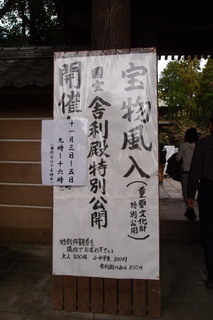 宝物風入
(重要文化財
特別公開)
国宝 舎利殿特別公開
開催
十一月三日~五日
九時~十六時
特別拝観券を
大人 500円 小中学生 300円